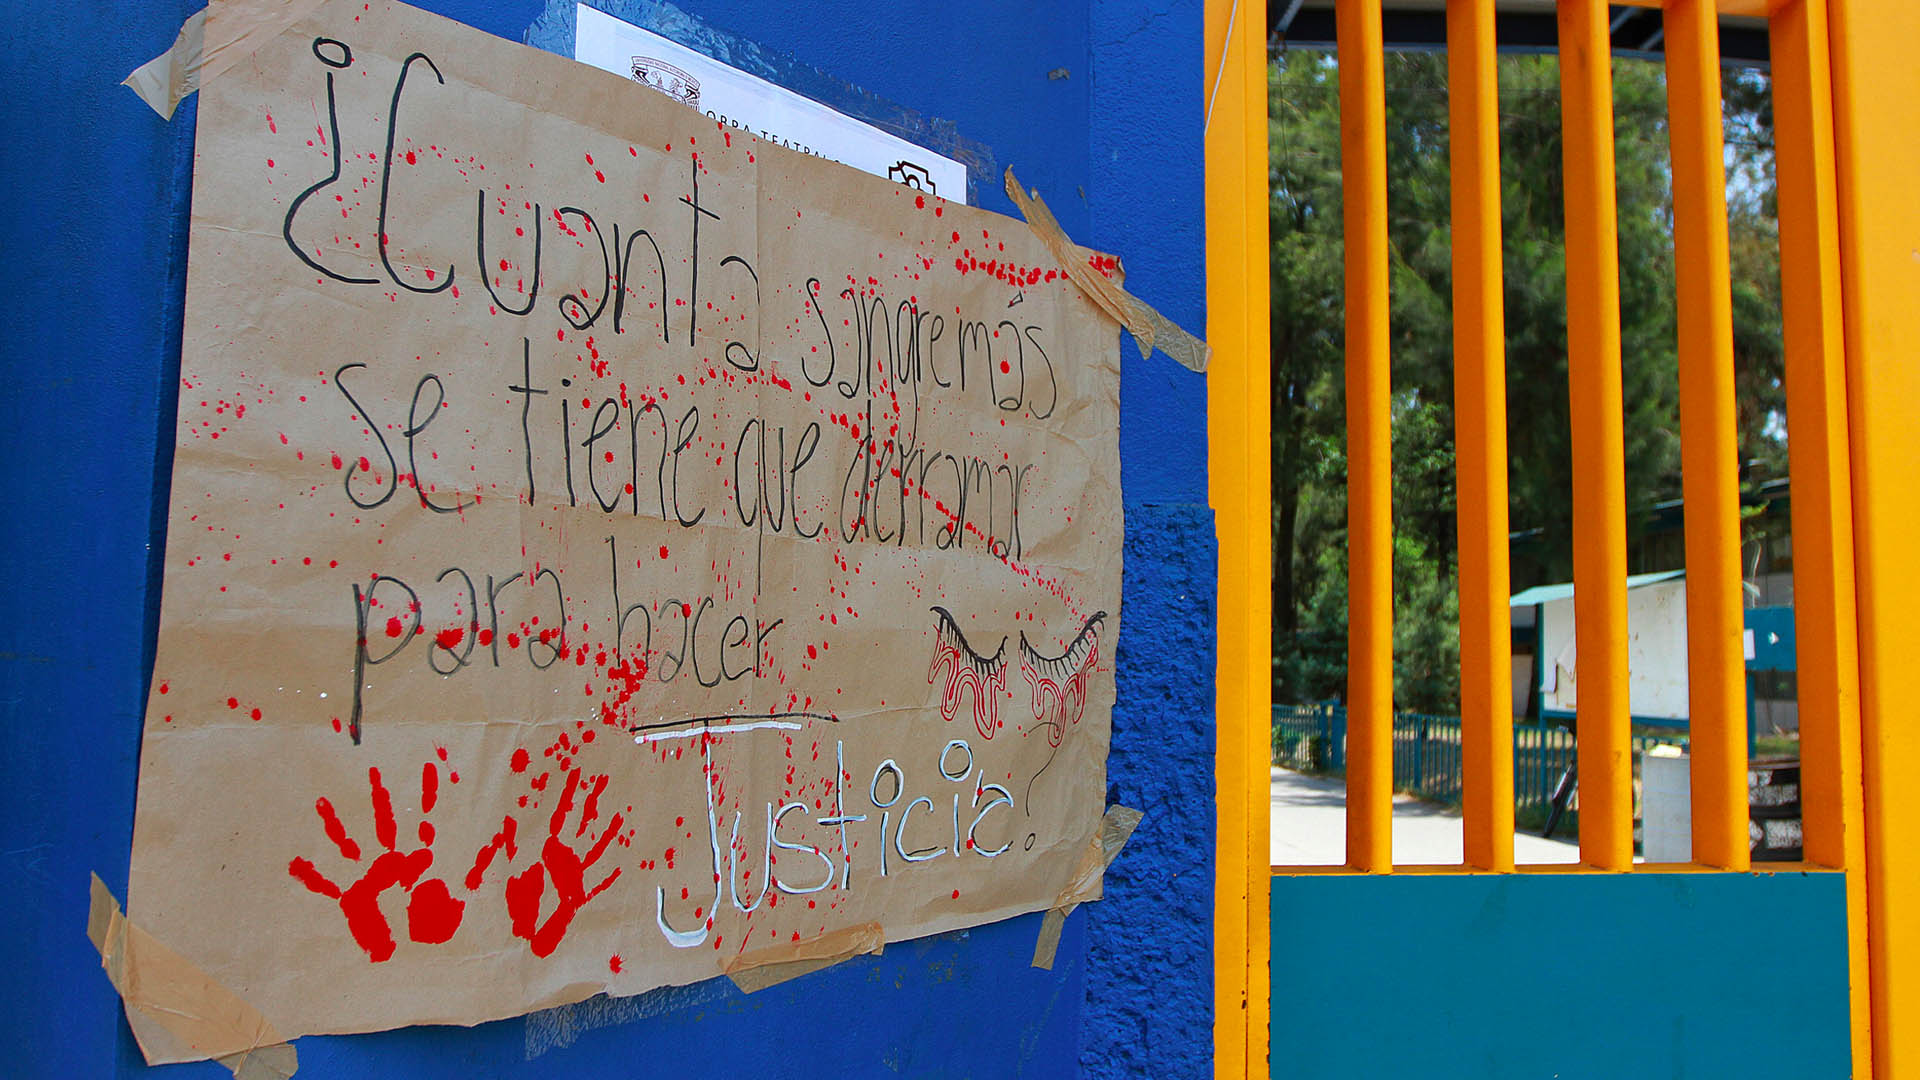 OBRA TEATRAL
¿Cuanta sangre más
se tiene que derramar
para hacer
Justicia?